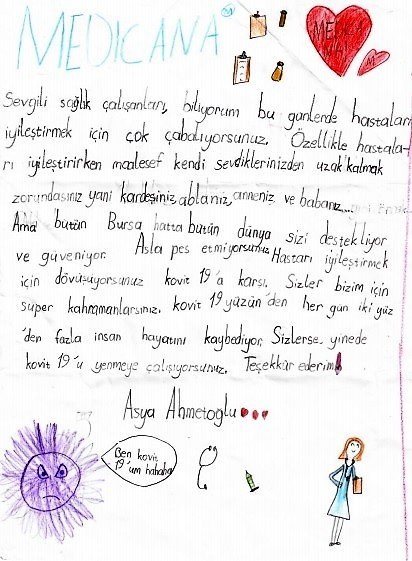 MEDICANA
MEDICA
M
Sevgili sağlık çalışanları, biliyorum bu günlerde hastaları
iyileştirmek için çok çabalıyorsunuz. Özellikle hastala-
rı iyileştirirken maalesef kendi sevdiklerinizden uzak kalmak
zorundasınız yani kardeşiniz, ablanız, anneniz ve babanız...
Ama bütün Bursa hatta bütün dünya sizi destekliyor
ve güveniyor. Asla pes etmiyorsunuz. Hastarı iyileştirmek
için dövüşüyorsunuz kovit 19'a karşı. Sizler bizim için
süper kahramanlarsınız. kovit 19 yüzün'den her gün iki yüz
'den fazla insan hayatını kaybediyor. Sizlerse yinede
kovit 19'u yenmeye çalışıyorsunuz. Teşekkür ederim!
Asya Ahmetoglu
Ben kovit
19'um hahaha